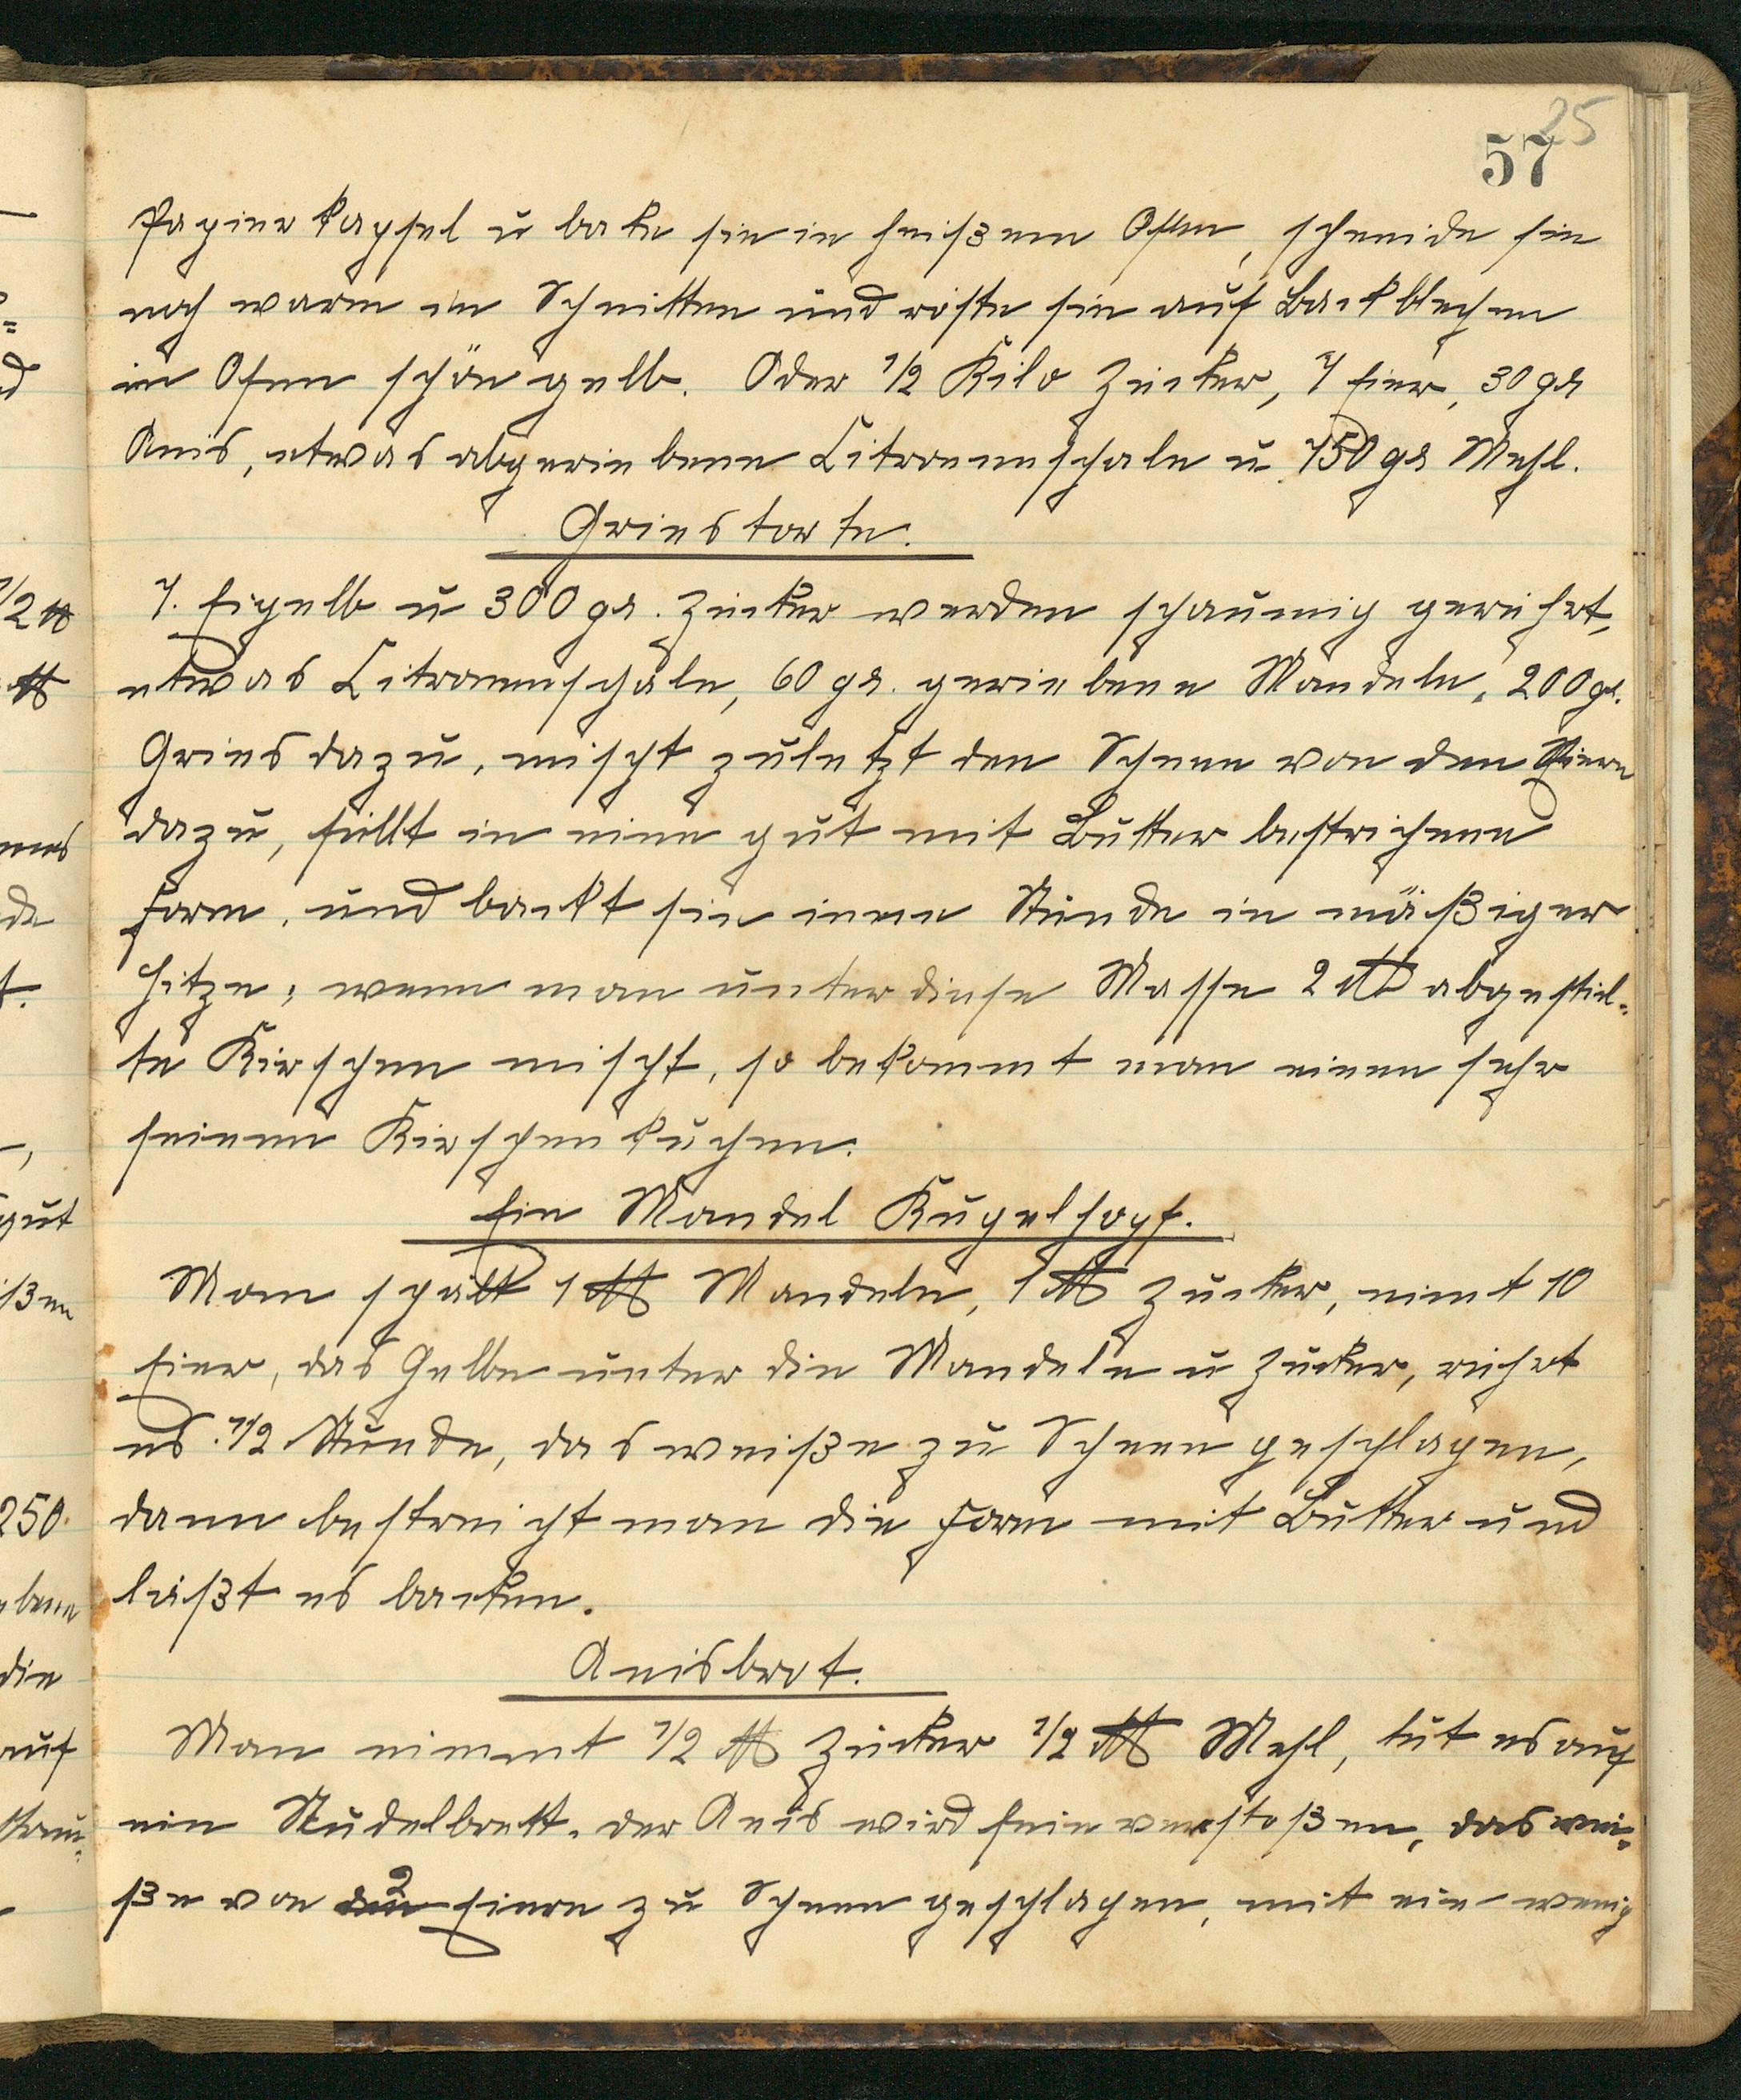 25
57
Papierkapsel u bake sie in heißem Ofen, schneide sie
noch warm in Schnitten und röste sie auf Backblechen
im Ofen schön gelb. Oder 1/2 Kilo Zucker, 7 Eier, 30 gr
Anis, etwas abgeriebene Citronenschale u. 750 gr Mehl.
Griestorte.
7. Eigelb u 300 gr. Zucker werden schaumig gerührt,
etwas Citronenschale, 60 gr. geriebene Mandeln, 200 gr.
Gries dazu, mischt zuletzt den Schnee von den Eiern
dazu, füllt in eine gut mit Butter bestrichene
Form, und backt sie inene Stunde in mäßiger
Hitze; wenn man unter diese Masse 2 ℔ abgestiel=
te Kirschen mischt, so bekommt man einen sehr
feinen Kirschenkuchen.
Ein Mandel Kugelhopf.
Man schält 1 ℔ Mandeln, 1 ℔ Zucker, nimt 10
Eier, das Gelbe unter die Mandeln u Zucker, rührt
es 1/2 Stunde, das weiße zu Schnee geschlagen,
dann bestreicht man die Form mit Butter und
läßt es backen.
Anisbrot.
Man nimmt 1/2 ℔ Zucker 1/2 ℔ Mehl, tut es auf
ein Nudelbrett, der Anis wird fein verstoßen, das wei=
ße von 2 Eiern zu Schnee geschlagen, mit ein wenig